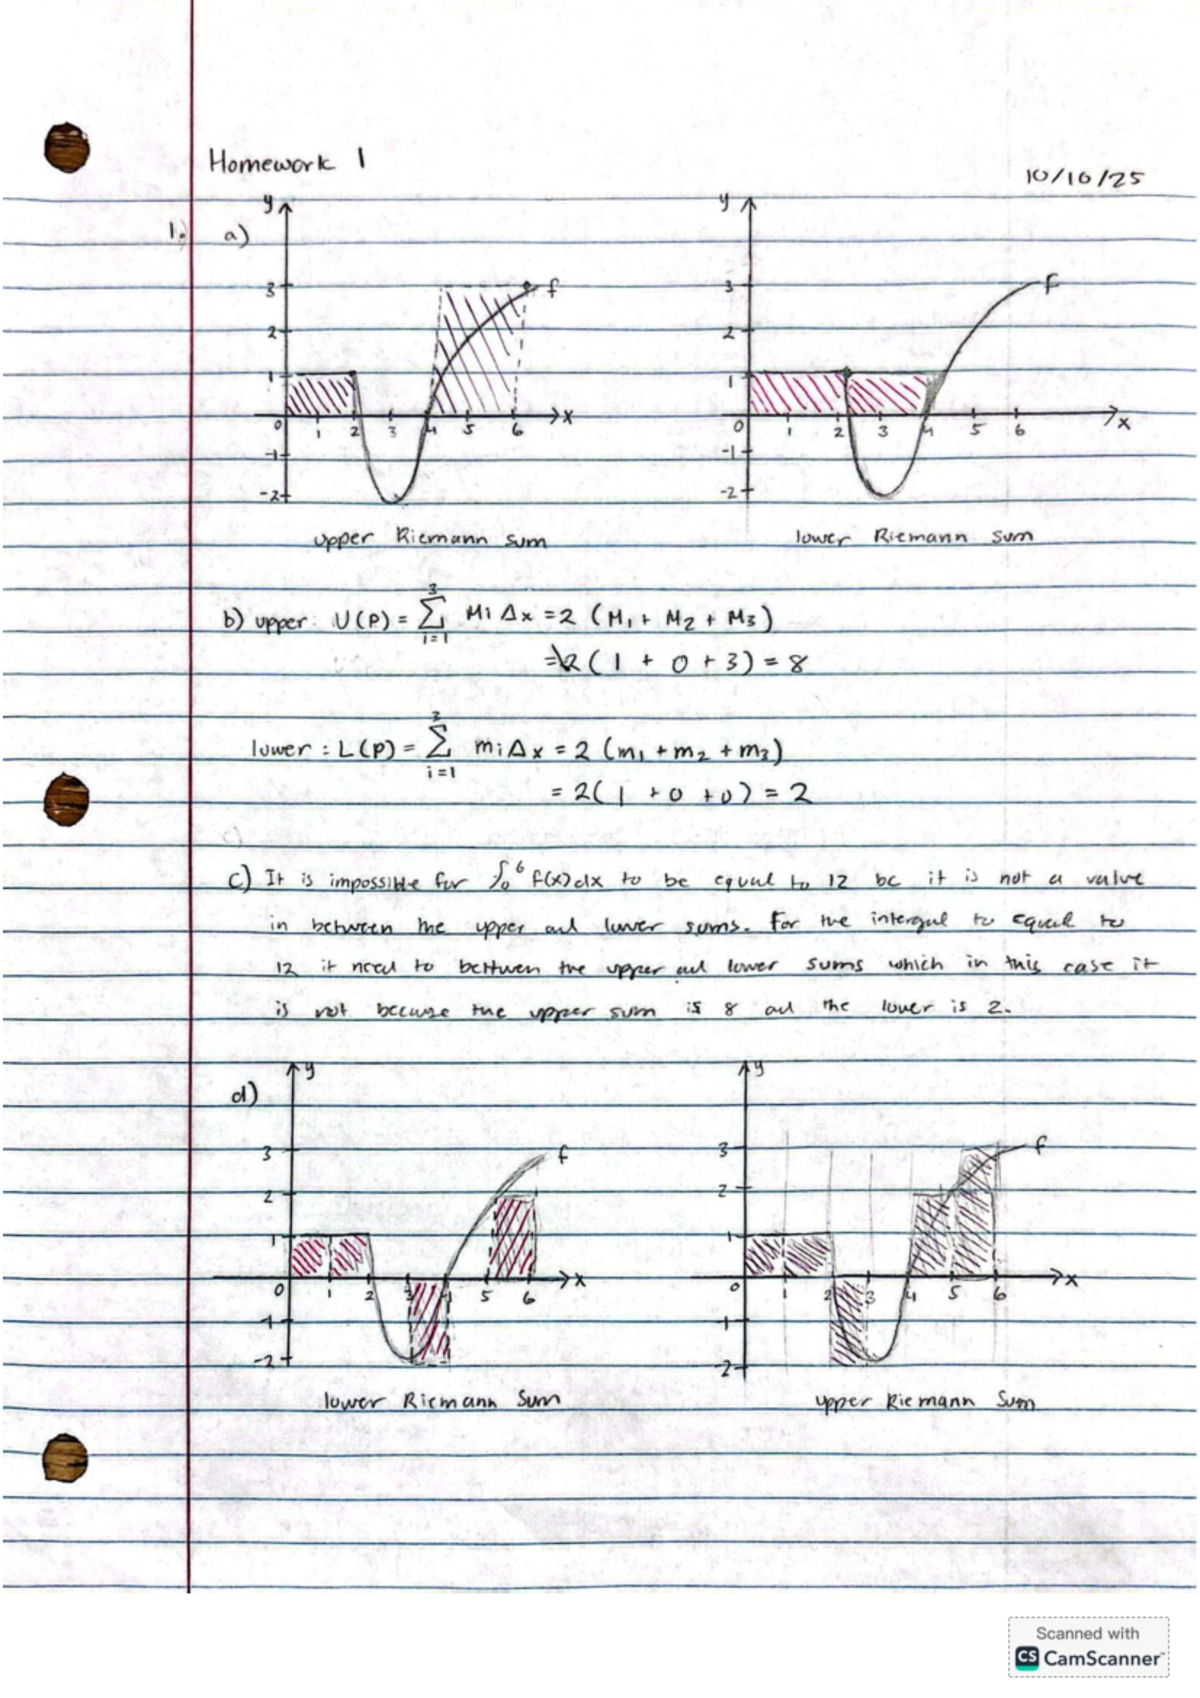 Homework 1
10/10/25
1.) a)
y
3
2
1
0 1 2 3 4 5 6 x
-1
-2
f
upper Riemann sum
y
3
2
1
0 1 2 3 4 5 6 x
-1
-2
f
lower Riemann sum
b) upper: U(P) = 3 Σ i=1 Mi Δx = 2 (M₁ + M₂ + M₃)
= 2 ( 1 + 0 + 3) = 8
lower : L(P) = 3 Σ i=1 mi Δx = 2 (m₁ + m₂ + m₃)
= 2( 1 + 0 + 0) = 2
c) It is impossible for ∫₀⁶ f(x)dx to be equal to 12 bc it is not a value
in between the upper and lower sums. For the intergal to equal to
12 it need to bettwen the upper and lower sums which in this case it
is not because the upper sum is 8 and the lower is 2.
d)
y
3
2
1
0 1 2 3 4 5 6 x
-1
-2
f
lower Riemann Sum
y
3
2
1
0 1 2 3 4 5 6 x
-1
-2
f
upper Riemann Sum
Scanned with
CS CamScanner